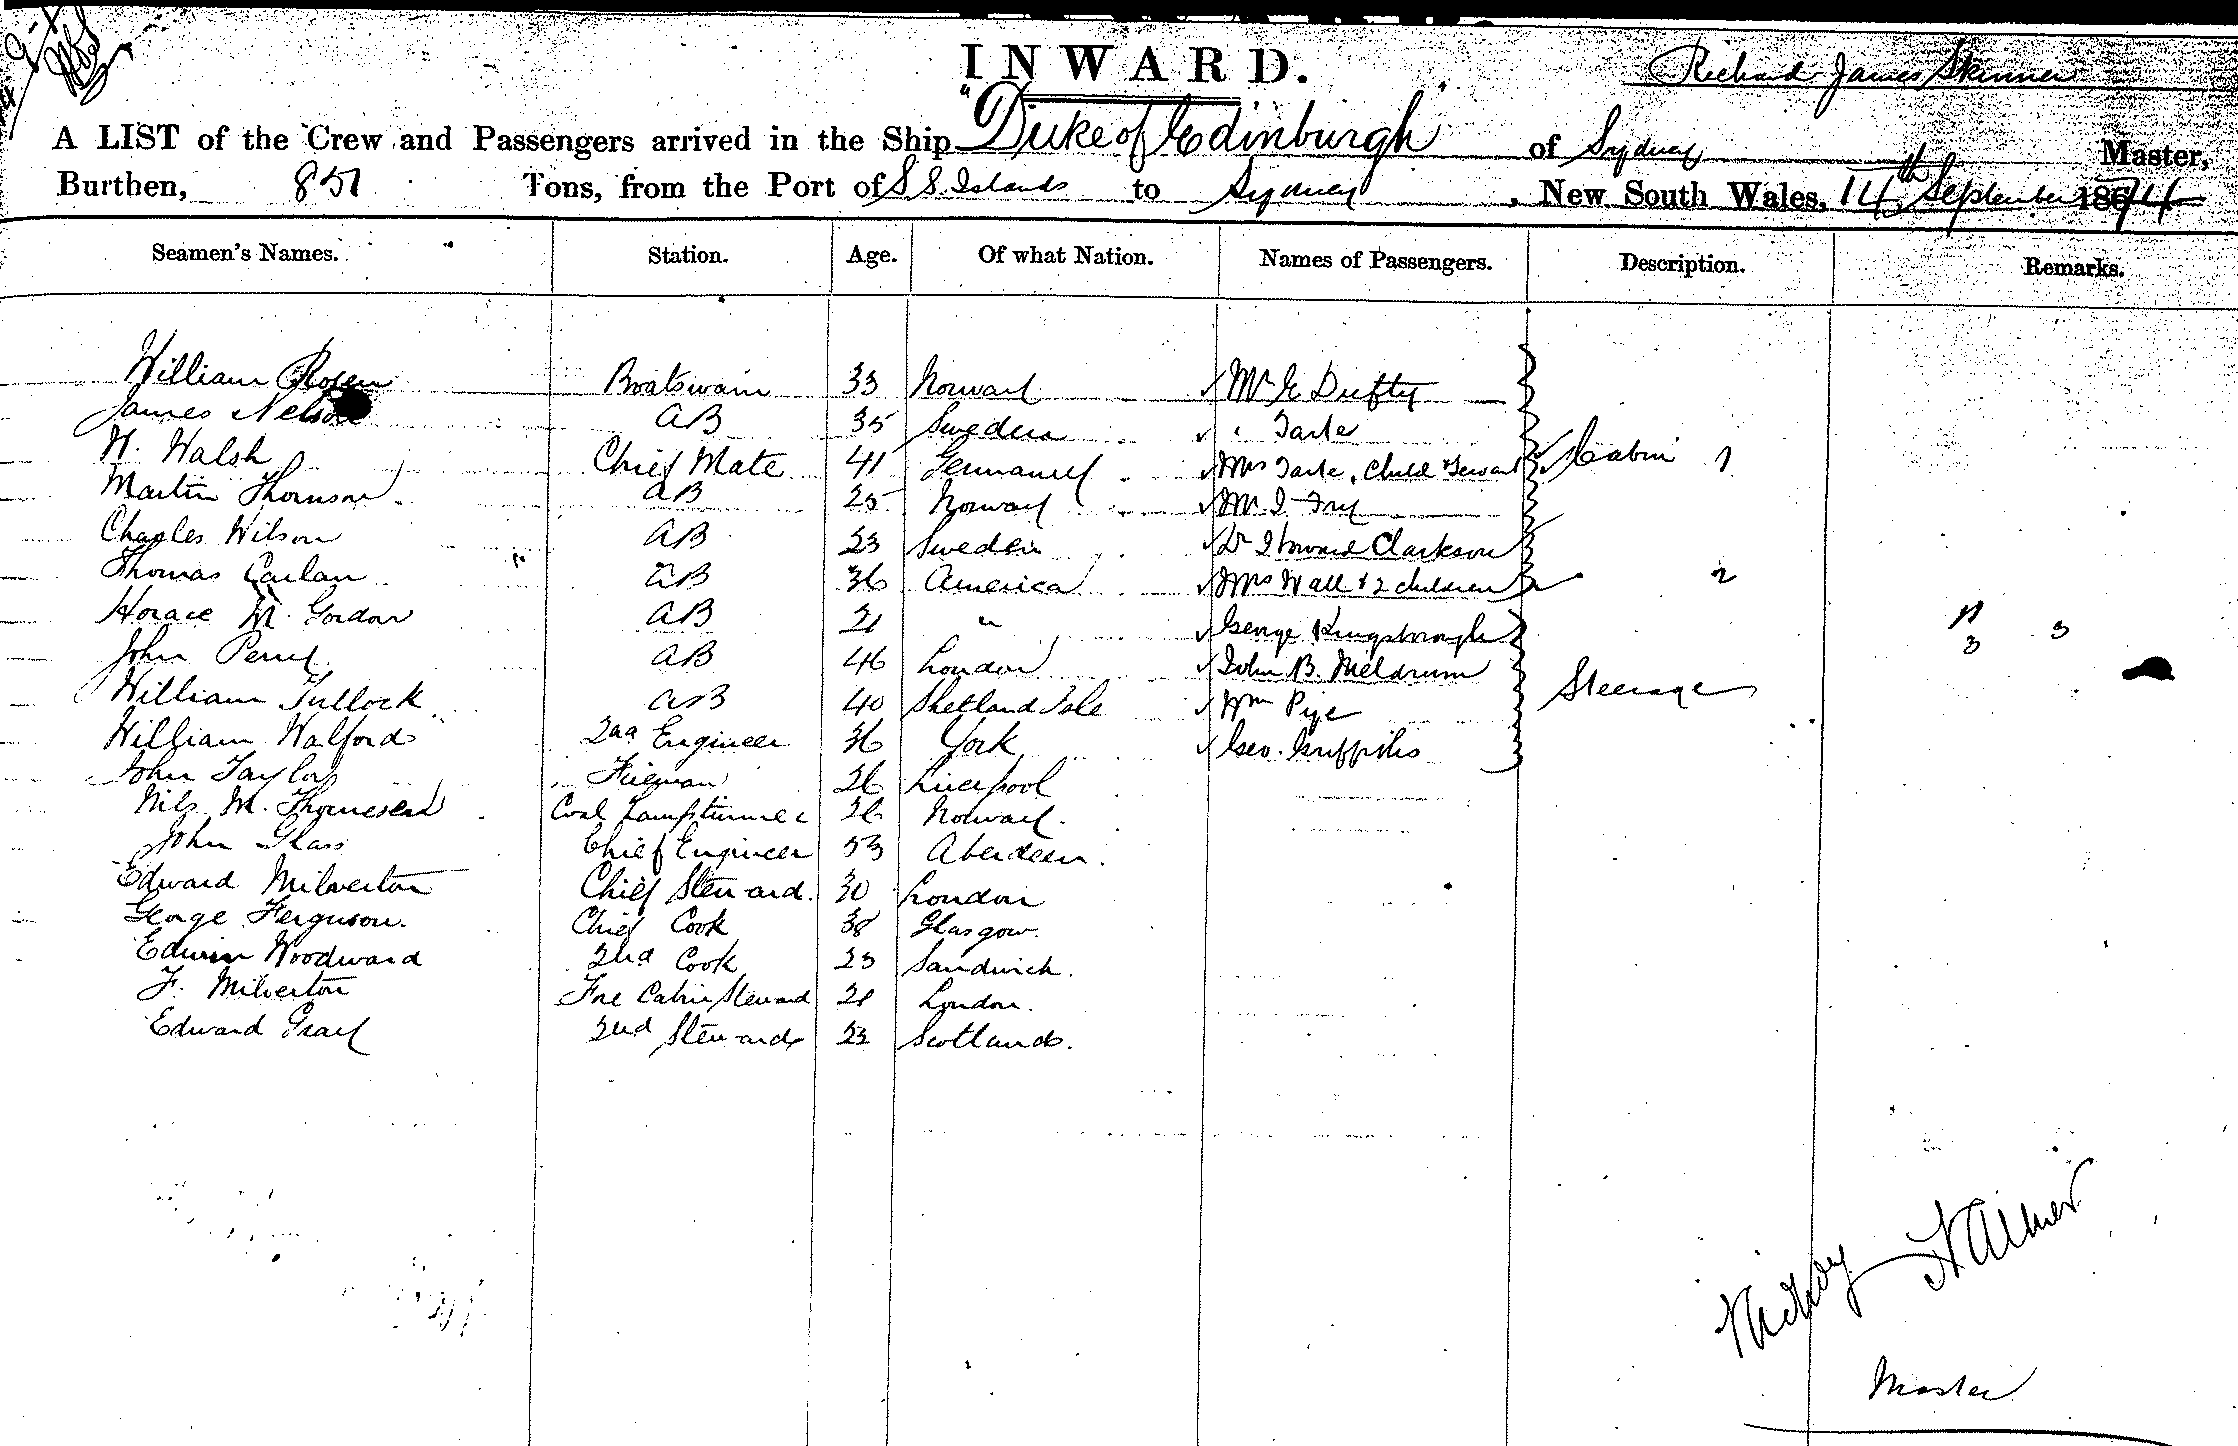 INWARD.
Richard James Skinner
A LIST of the Crew and Passengers arrived in the Ship "Duke of Edinburgh" of Sydney Master,
Burthen, 851 Tons, from the Port of S.S. Islands to Sydney, New South Wales, 14th September 1874
Seamen's Names. Station. Age. Of what Nation. Names of Passengers. Description. Remarks.
William Rosen Boatswain 33 Norway Mr E Dufty
James Nelson AB 35 Sweden " Tarte
W. Walsh Chief Mate 41 Germany Mrs Tarte, Child & Servant Cabin 1
Martin Thomson AB 25 Norway Mr I Fry
Charles Wilson AB 23 Sweden Dr Howard Clarkson
Thomas AB 36 America Mrs Wall & 2 children 2
Horace M. Gordon AB 21 " George Kingsborough 11
John Perry AB 46 London John B. Meldrum 3 3
William Tullock AB 40 Shetland Isle Wm Pye Steerage
William Walford 2nd Engineer 36 York Geo. Griffiths
John Taylor Fireman 26 Liverpool
Nils M. Thomesen Coal 26 Norway.
John Glass Chief Engineer 53 Aberdeen.
Edward Milverton Chief Steward. 30 London
George Ferguson. Chief Cook 38 Glasgow.
Edwin Woodward 2nd Cook 23 Sandwich.
F. Milverton Fre Cabin Steward 21 London.
Edward Gray 2nd Steward 23 Scotland.
Master